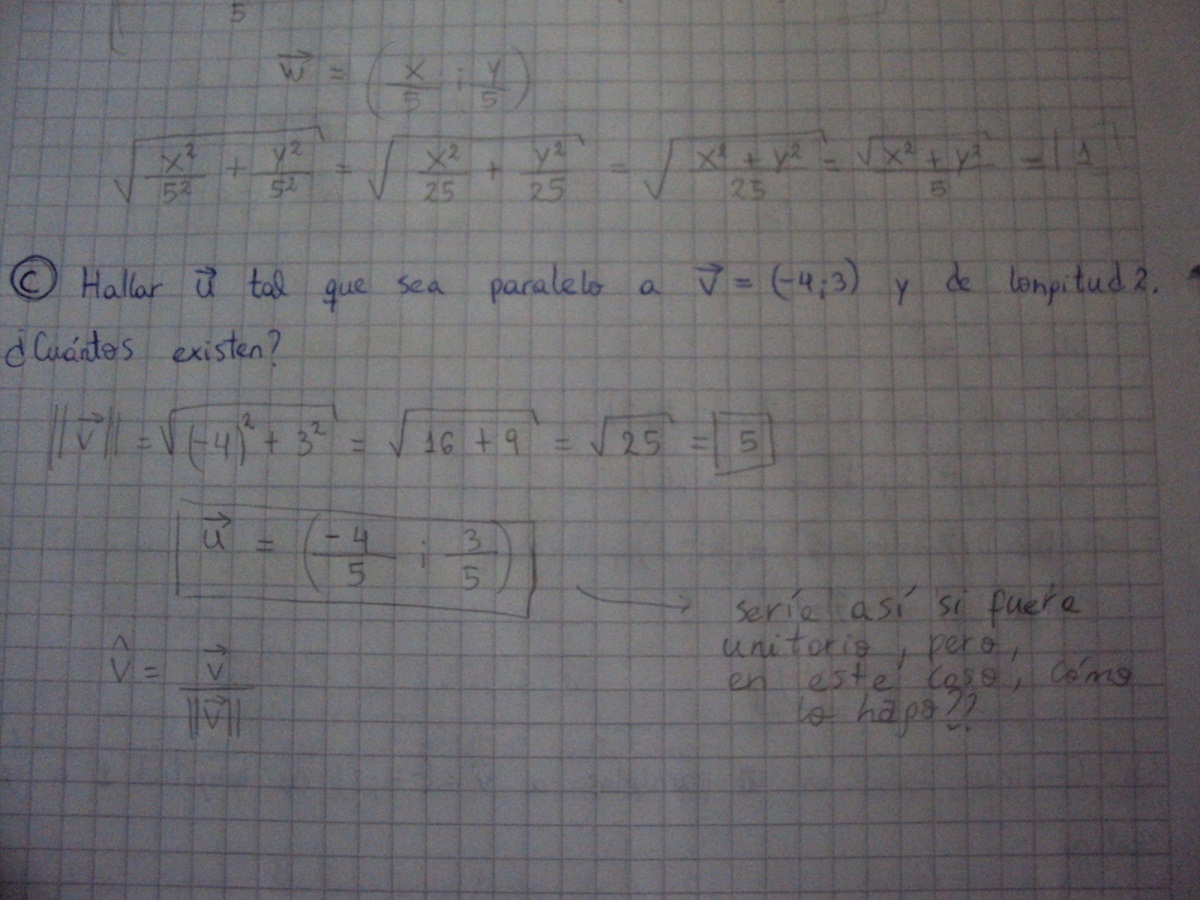 5
w⃗ = (x/5 ; y/5)
√(x²/5² + y²/5²) = √(x²/25 + y²/25) = √((x² + y²)/25) = √(x² + y²)/5 = 1
Ⓒ Hallar u⃗ tal que sea paralelo a v⃗ = (-4;3) y de longitud 2.
¿Cuántos existen?
||v⃗|| = √((-4)² + 3²) = √(16 + 9) = √25 = 5
u⃗ = (-4/5 ; 3/5)
→ sería así si fuera
unitario, pero,
en este caso, cómo
lo hago??
v̂ = v⃗/||v⃗||